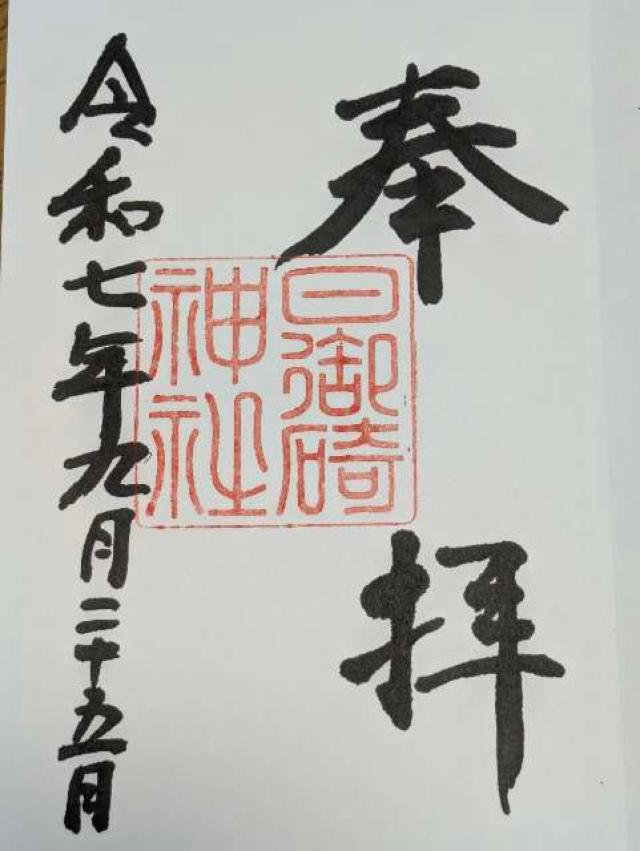 奉拝
日御碕
神社
令和七年九月二十五月